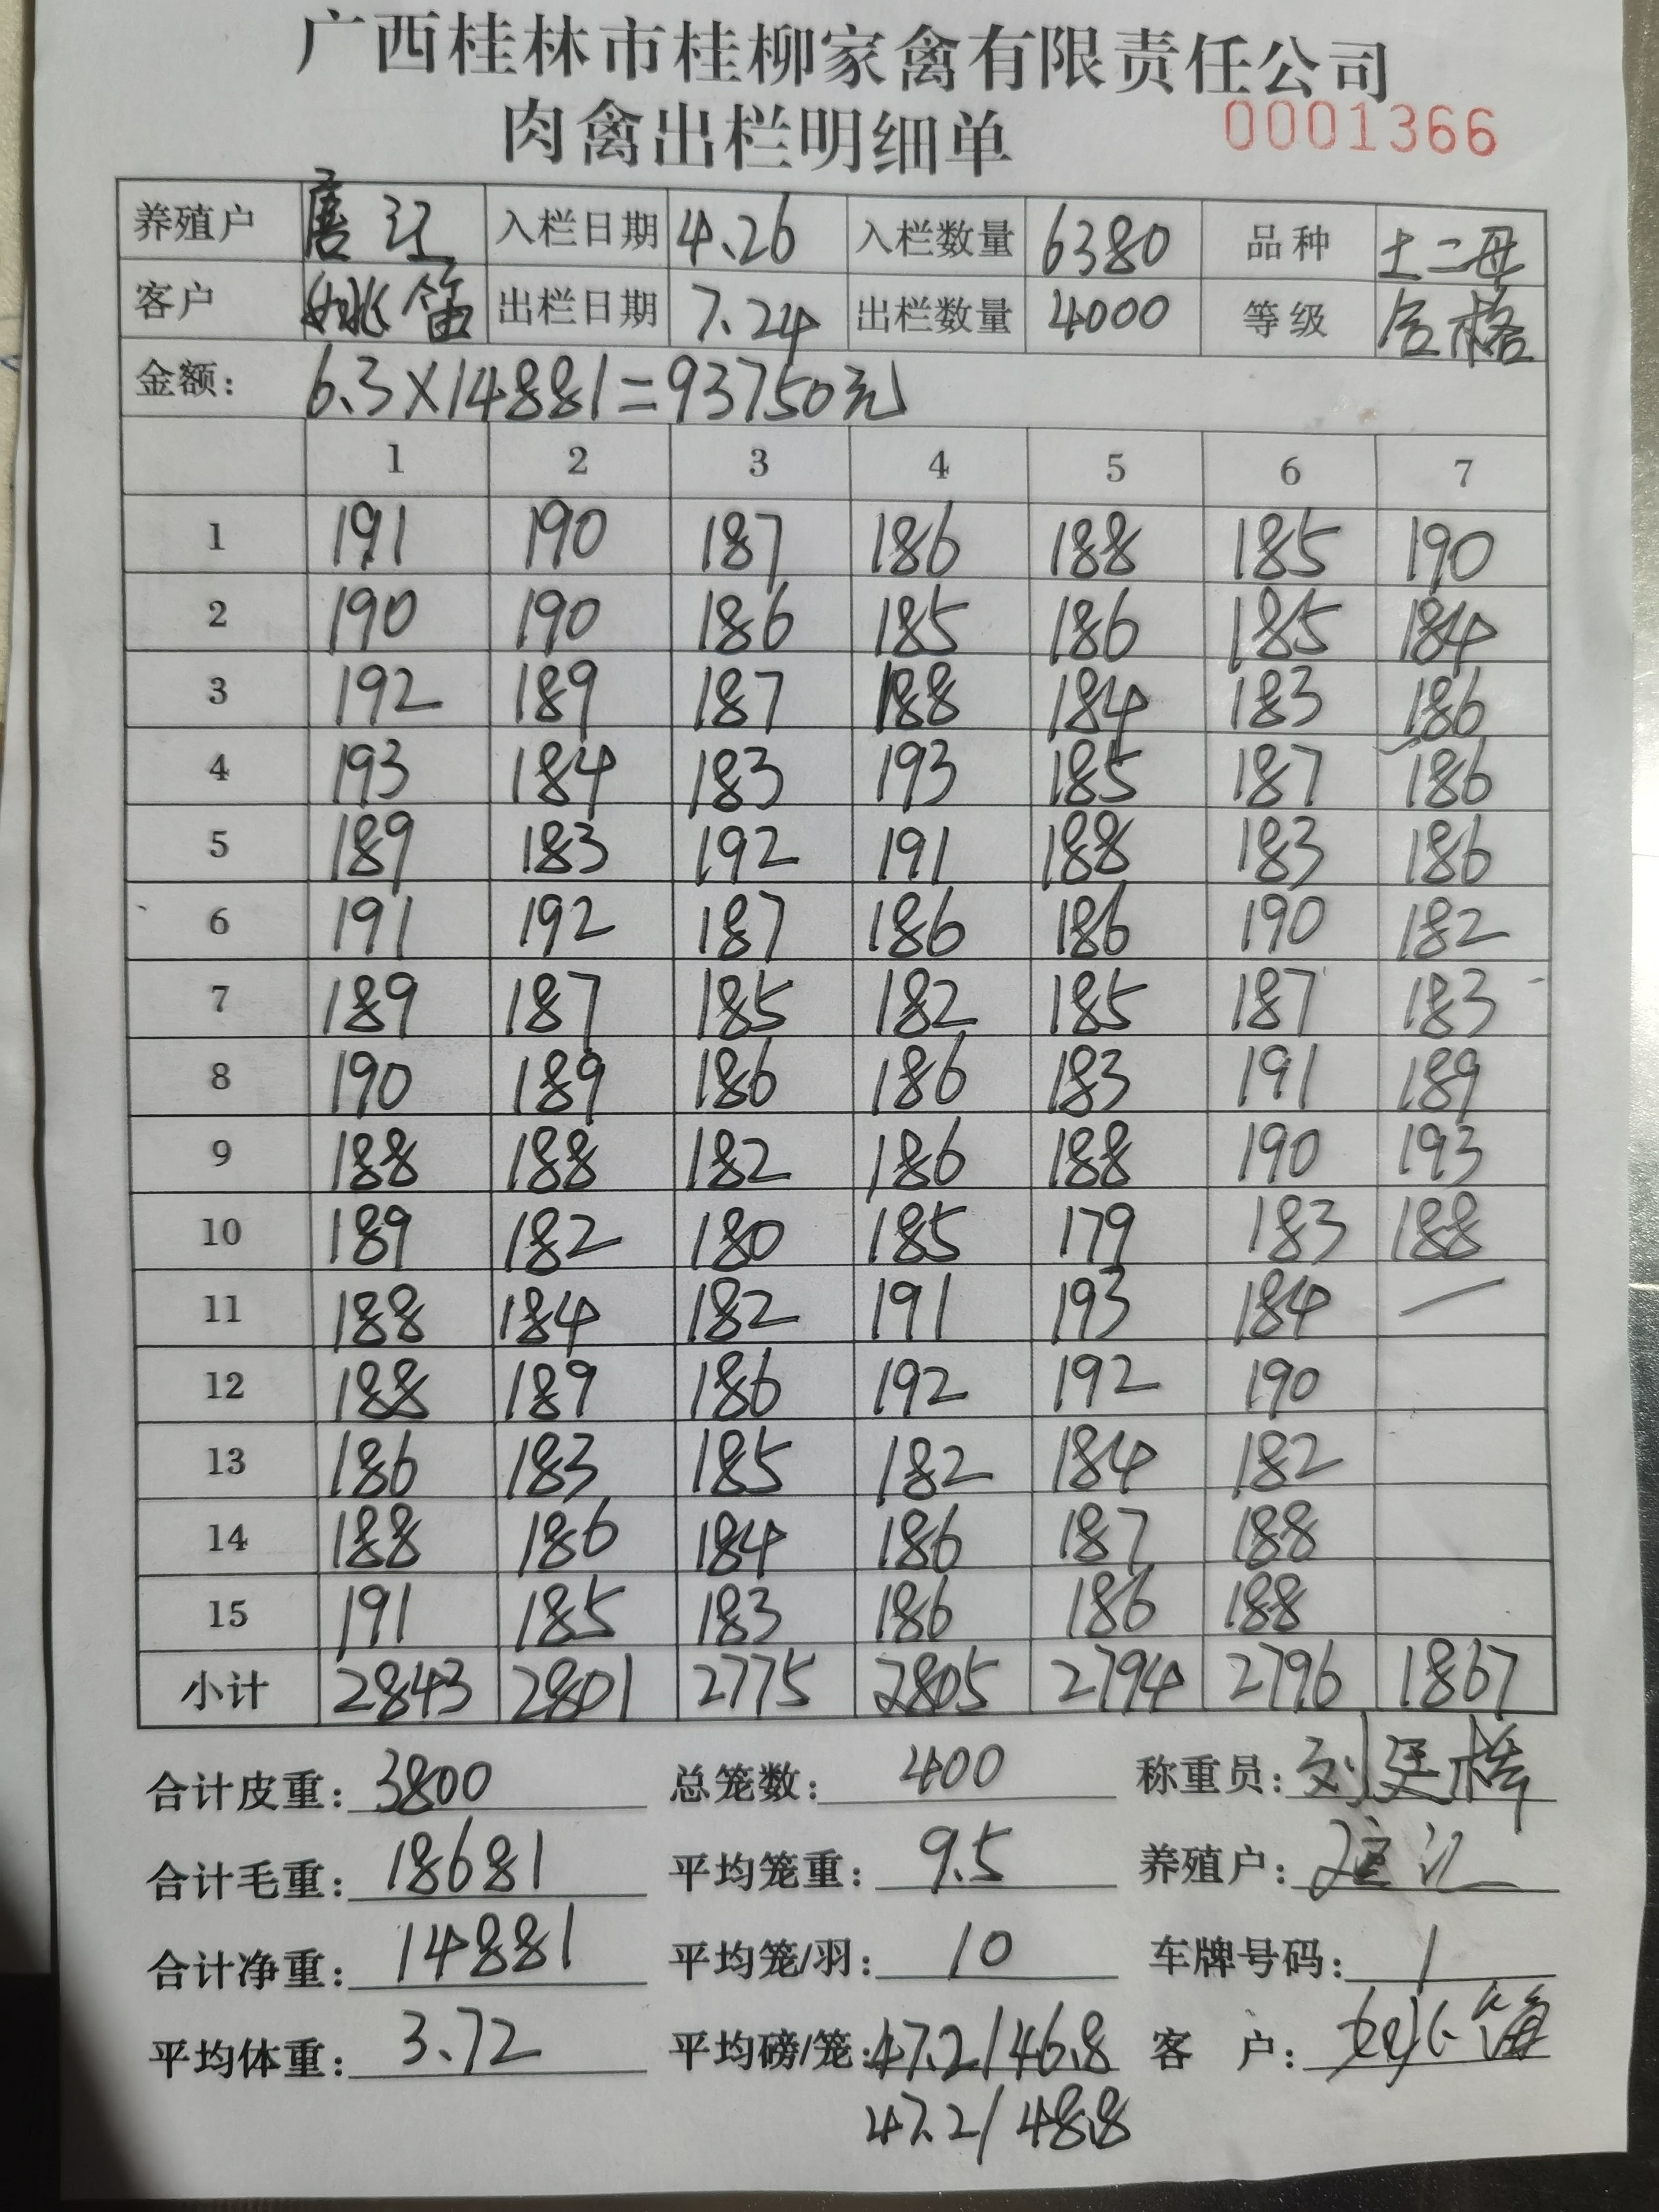 广西桂林市桂柳家禽有限责任公司
肉禽出栏明细单 0001366
养殖户 唐江 入栏日期 4.26 入栏数量 6380 品种 土二母
客户 姚笛 出栏日期 7.24 出栏数量 4000 等级 合格
金额: 6.3×14881=93750元
1 2 3 4 5 6 7
1 191 190 187 186 188 185 190
2 190 190 186 185 186 185 184
3 192 189 187 188 184 183 186
4 193 184 183 193 185 187 186
5 189 183 192 191 188 183 186
6 191 192 187 186 186 190 182
7 189 187 185 182 185 187 183
8 190 189 186 186 183 191 189
9 188 188 182 186 188 190 193
10 189 182 180 185 179 183 188
11 188 184 182 191 193 184 —
12 188 189 186 192 192 190
13 186 183 185 182 184 182
14 188 186 184 186 187 188
15 191 185 183 186 186 188
小计 2843 2801 2775 2805 2794 2796 1867
合计皮重: 3800 总笼数: 400 称重员:
合计毛重: 18681 平均笼重: 9.5 养殖户:
合计净重: 14881 平均笼/羽: 10 车牌号码: 1
平均体重: 3.72 平均磅/笼: 47.2/46.8 客 户: 姚笛
47.2/48.8